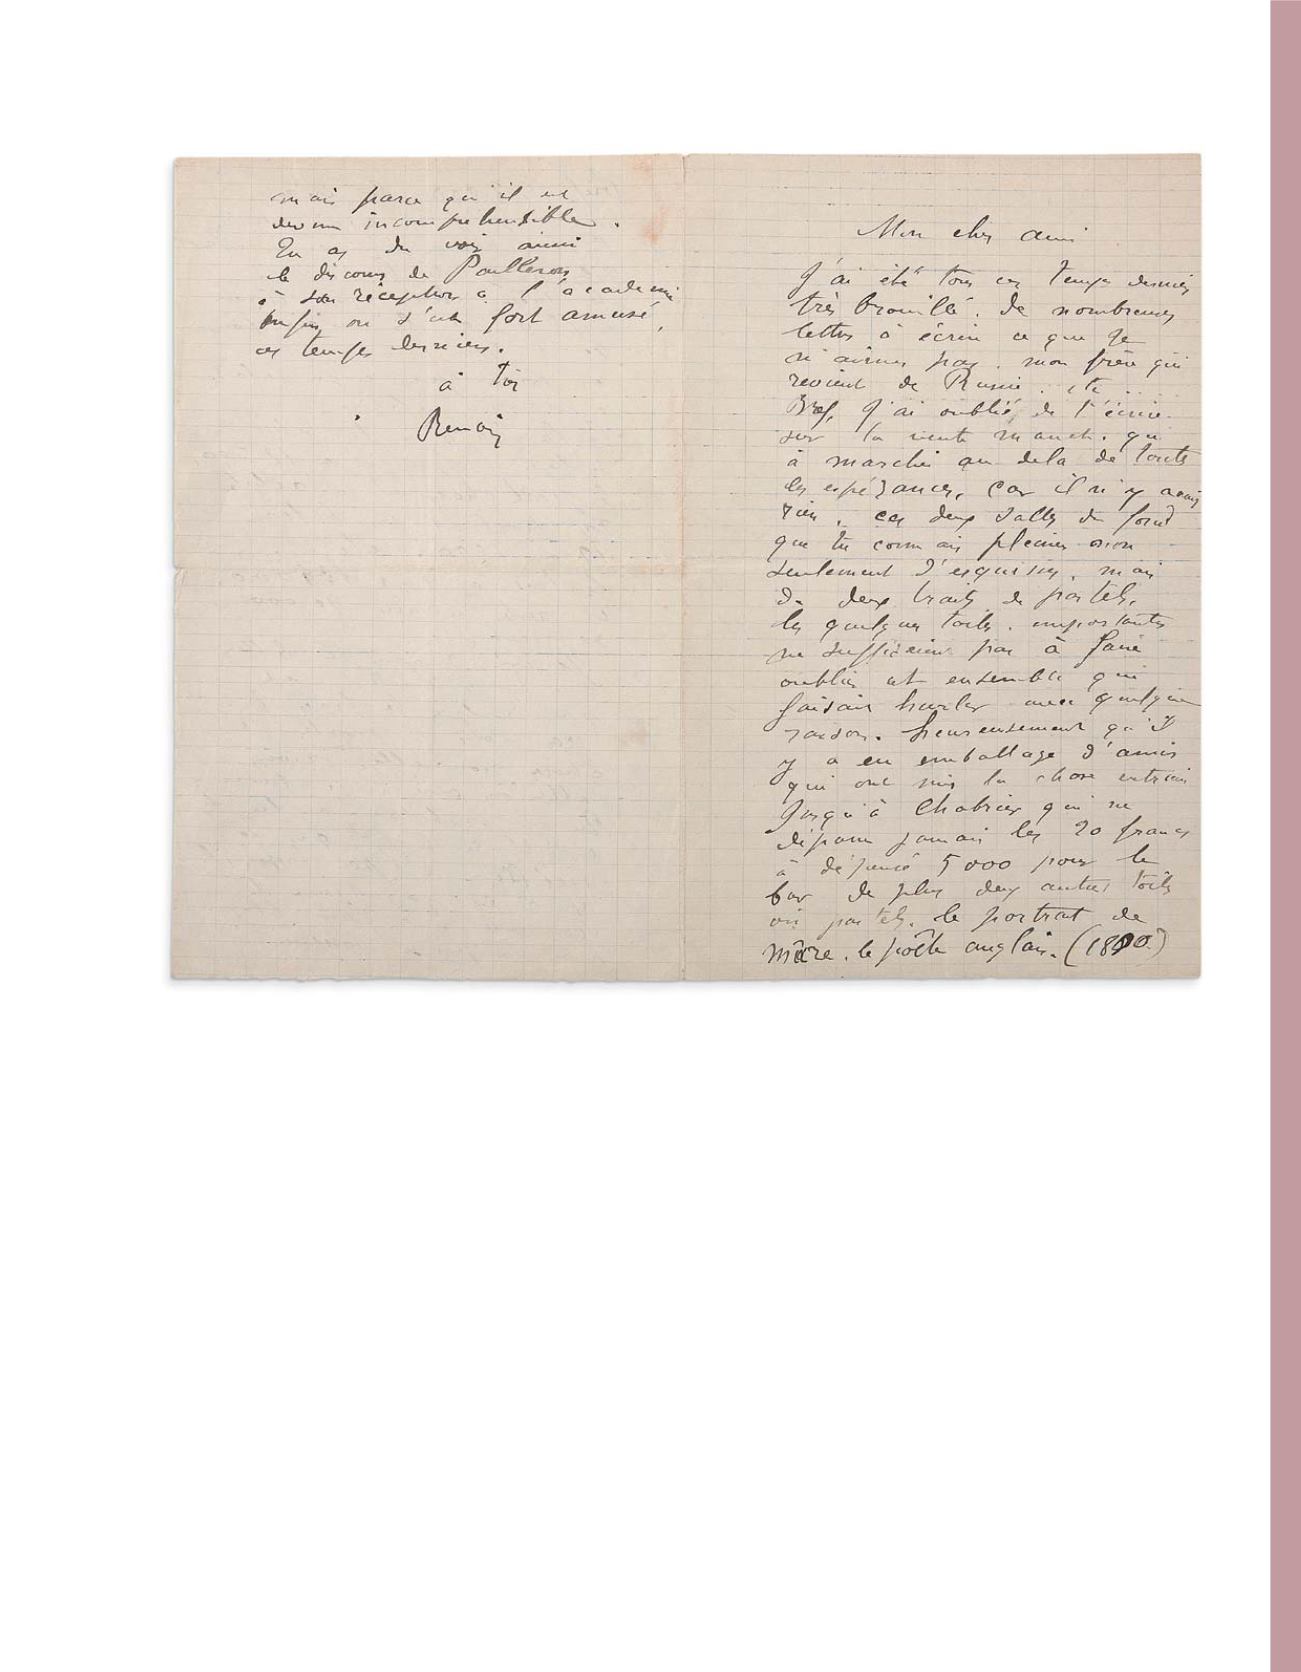 mais parce qu'il est
devenu incompréhensible.
Tu as du voir aussi
le discours de Pailleron
à sa réception à l'academie
enfin on s'est fort amusé,
ces temps derniers.
à toi
Renoir
Mon cher ami
J'ai été tous ces temps derniers
très brouillé. De nombreuses
lettres à écrire ce que je
n'aime pas. mon frère qui
revient de Russie. etc...
Bref, j'ai oublié de t'écrire
sur la vente manet. qui
à marché au delà de toutes
les espérances, car il n'y avait
rien, ces deux salles du fond
que tu connais pleines non
seulement d'esquisses, mais
de deux traits de pastels,
les quelques toiles. importantes
ne suffisaient pas à faire
oublier cet ensemble qui
faisait hurler avec quelque
raison. heureusement qu'il
y a eu emballage d'amis
qui ont mis la chose en train
Jusqu'à Chabrier qui ne
dépasse jamais les 20 francs
à dépensé 5000 pour le
bar de plus deux autres toiles
ou pastels. le portrait de
môre. le poëte anglais. (1880)